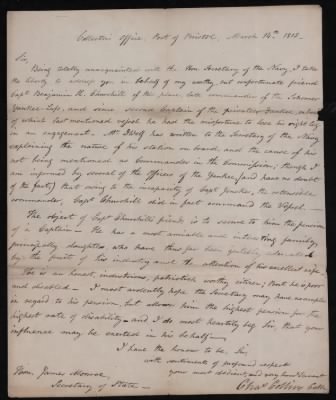 Collector's Office, Port of Bristol, March 14th. 1815.
Sir,
Being totally unacquainted with the Hon. Secretary of the Navy, I take
the liberty to address you in behalf of my worthy, but unfortunate friend
Capt Benjamin K. Churchill of this place, late commander of the Schooner
Yankee Lass, and since second Captain of the privateer Yankee, on board
of which last mentioned vessel he had the misfortune to lose his right leg
in an engagement. Mr. DWolf has written to the Secretary of the Navy
explaining the nature of his station on board, and the cause of his
not being mentioned as Commander in the Commission; though I
am informed by several of the officers of the Yankee, (and have no doubt
of the fact,) that owing to the incapacity of Capt the ostensible
commander, Capt. Churchill did in fact command the Vessel.
The object of Capt Churchill's friends is to secure to him the pension
of a Captain — He has a most amiable and interesting family,
principally daughters, who have thus far been genteely educated
by the fruit of his industry and the attention of his excellent wife.
He is an honest, industrious, patriotick, worthy citizen; But he is poor
and disabled — I most ardently hope the Secretary may have
in regard to his pension, but allow him the highest pension for the
highest rate of disability — and I do most heartily beg Sir, that your
influence may be exerted in his behalf —
I have the honour to be, Sir,
with sentiments of profound respect
your most obedient and very humble servant
Chas Collins Collr
Hon. James Monroe,
Secretary of State —